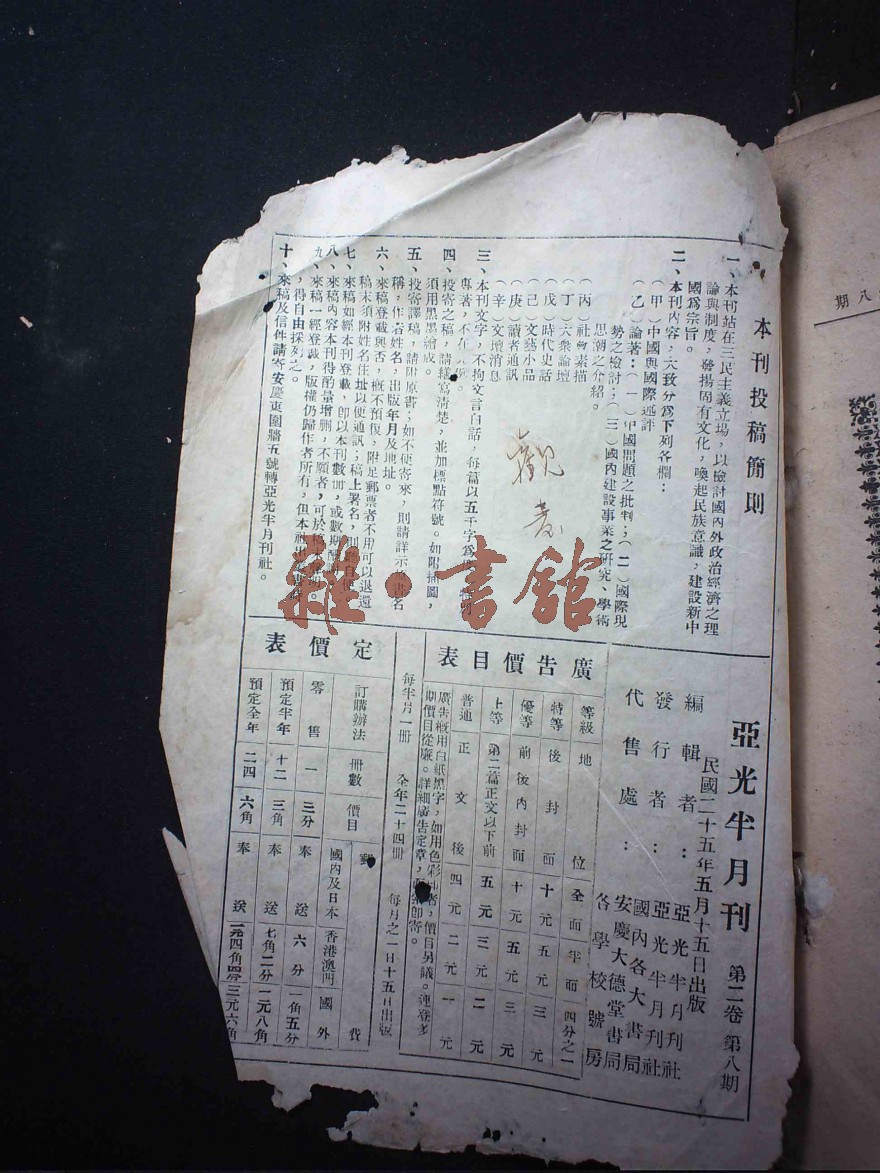 本刊投稿簡則
一、本刊站在三民主義立場，以檢討國內外政治經濟之理
論與制度，發揚固有文化，喚起民族意識，建設新中
國爲宗旨。
二、本刊內容，大致分爲下列各欄：
（甲）中國與國際述評
（乙）論著：（一）中國問題之批判；（二）國際現
勢之檢討；（三）國內建設事業之研究、學術
思潮之介紹。
（丙）社會素描
（丁）大衆論壇
（戊）時代史話
（己）文藝小品
（庚）讀者通訊
（辛）文壇消息
三、本刊文字，不拘文言白話，每篇以五千字爲
專著，不在
四、投寄之稿，請繕寫清楚，並加標點符號。如附插圖，
須用黑墨繪成。
五、投寄譯稿，請附原書；如不便寄來，則請詳示 書名
稱，作者姓名，出版年月及地址。
六、來稿登載與否，概不預復，附足郵票者不用可以退還
稿末須附姓名住址以便通訊；稿上署名，則 自便。
七、來稿如經本刊登載，卽以本刊數冊，或數期酬
八、來稿內容本刊得酌量增刪，不願者，可於稿
九、來稿一經登載，版權仍歸作者所有，但本社出
，得自由採列之。
十、來稿及信件請寄安慶東圍牆五號轉亞光半月刊社。
觀
雜·書館
亞光半月刊 第二卷 第八期
民國二十五年五月十五日出版
編輯者：亞光半月刊社
發行者：亞光半月刊社
代售處：國內各大書局
安慶大德堂書局
各學校號房
廣告價目表
等級 地位 全面 半面 四分之一
特等 後封面 十元 五元 三元
優等 前後內封面 十元 五元 三元
上等 第二篇正文以下前 五元 三元 二元
普通 正文後 四元 二元 一元
廣告概用白紙黑字，如用色彩 者，價目另議。連登多
期價目從廉。詳細廣告定章， 卽寄。
每半月一冊 全年二十四冊 每月之一日十五日出版
定價表
訂購辦法 冊數 價目 郵費
國內及日本 香港澳門 國外
零售 一 三分 奉送 六分 一角五分
預定半年 十二 三角 奉送 七角二分 一元八角
預定全年 二四 六角 奉送 一元四角四分 三元六角
八期